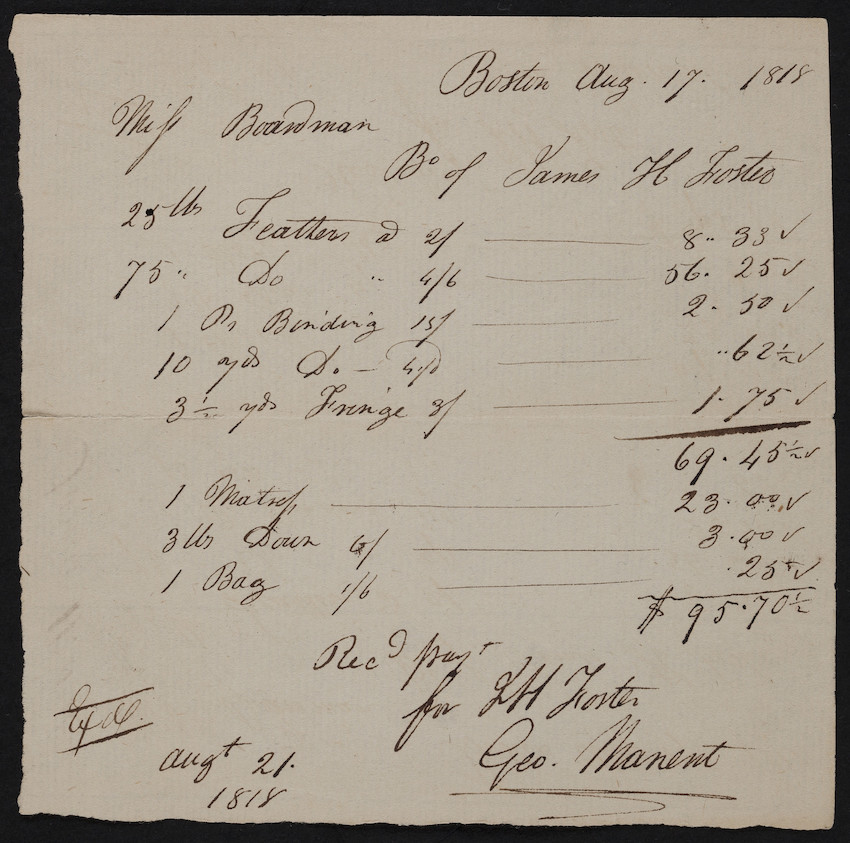 Boston Aug. 17. 1818
Miss Boardman
Bo of James H Foster
25 lbs Feathers a 2/ 8.. 33 ✓
75 " Do " 4/6 56. 25 ✓
1 Ps Binding 15/ 2. 50 ✓
10 yds Do - " 62 1/2 ✓
3 1/2 yds Fringe 3/ 1. 75 ✓
69. 45 1/2 ✓
1 Matress 23. 00 ✓
3 lbs Down 6/ 3. 00 ✓
1 Bag 1/6 . 25 ✓
$ 95. 70 1/2
Recd payt
for J H Foster
Geo. Manent
Exd.
augt 21.
1818